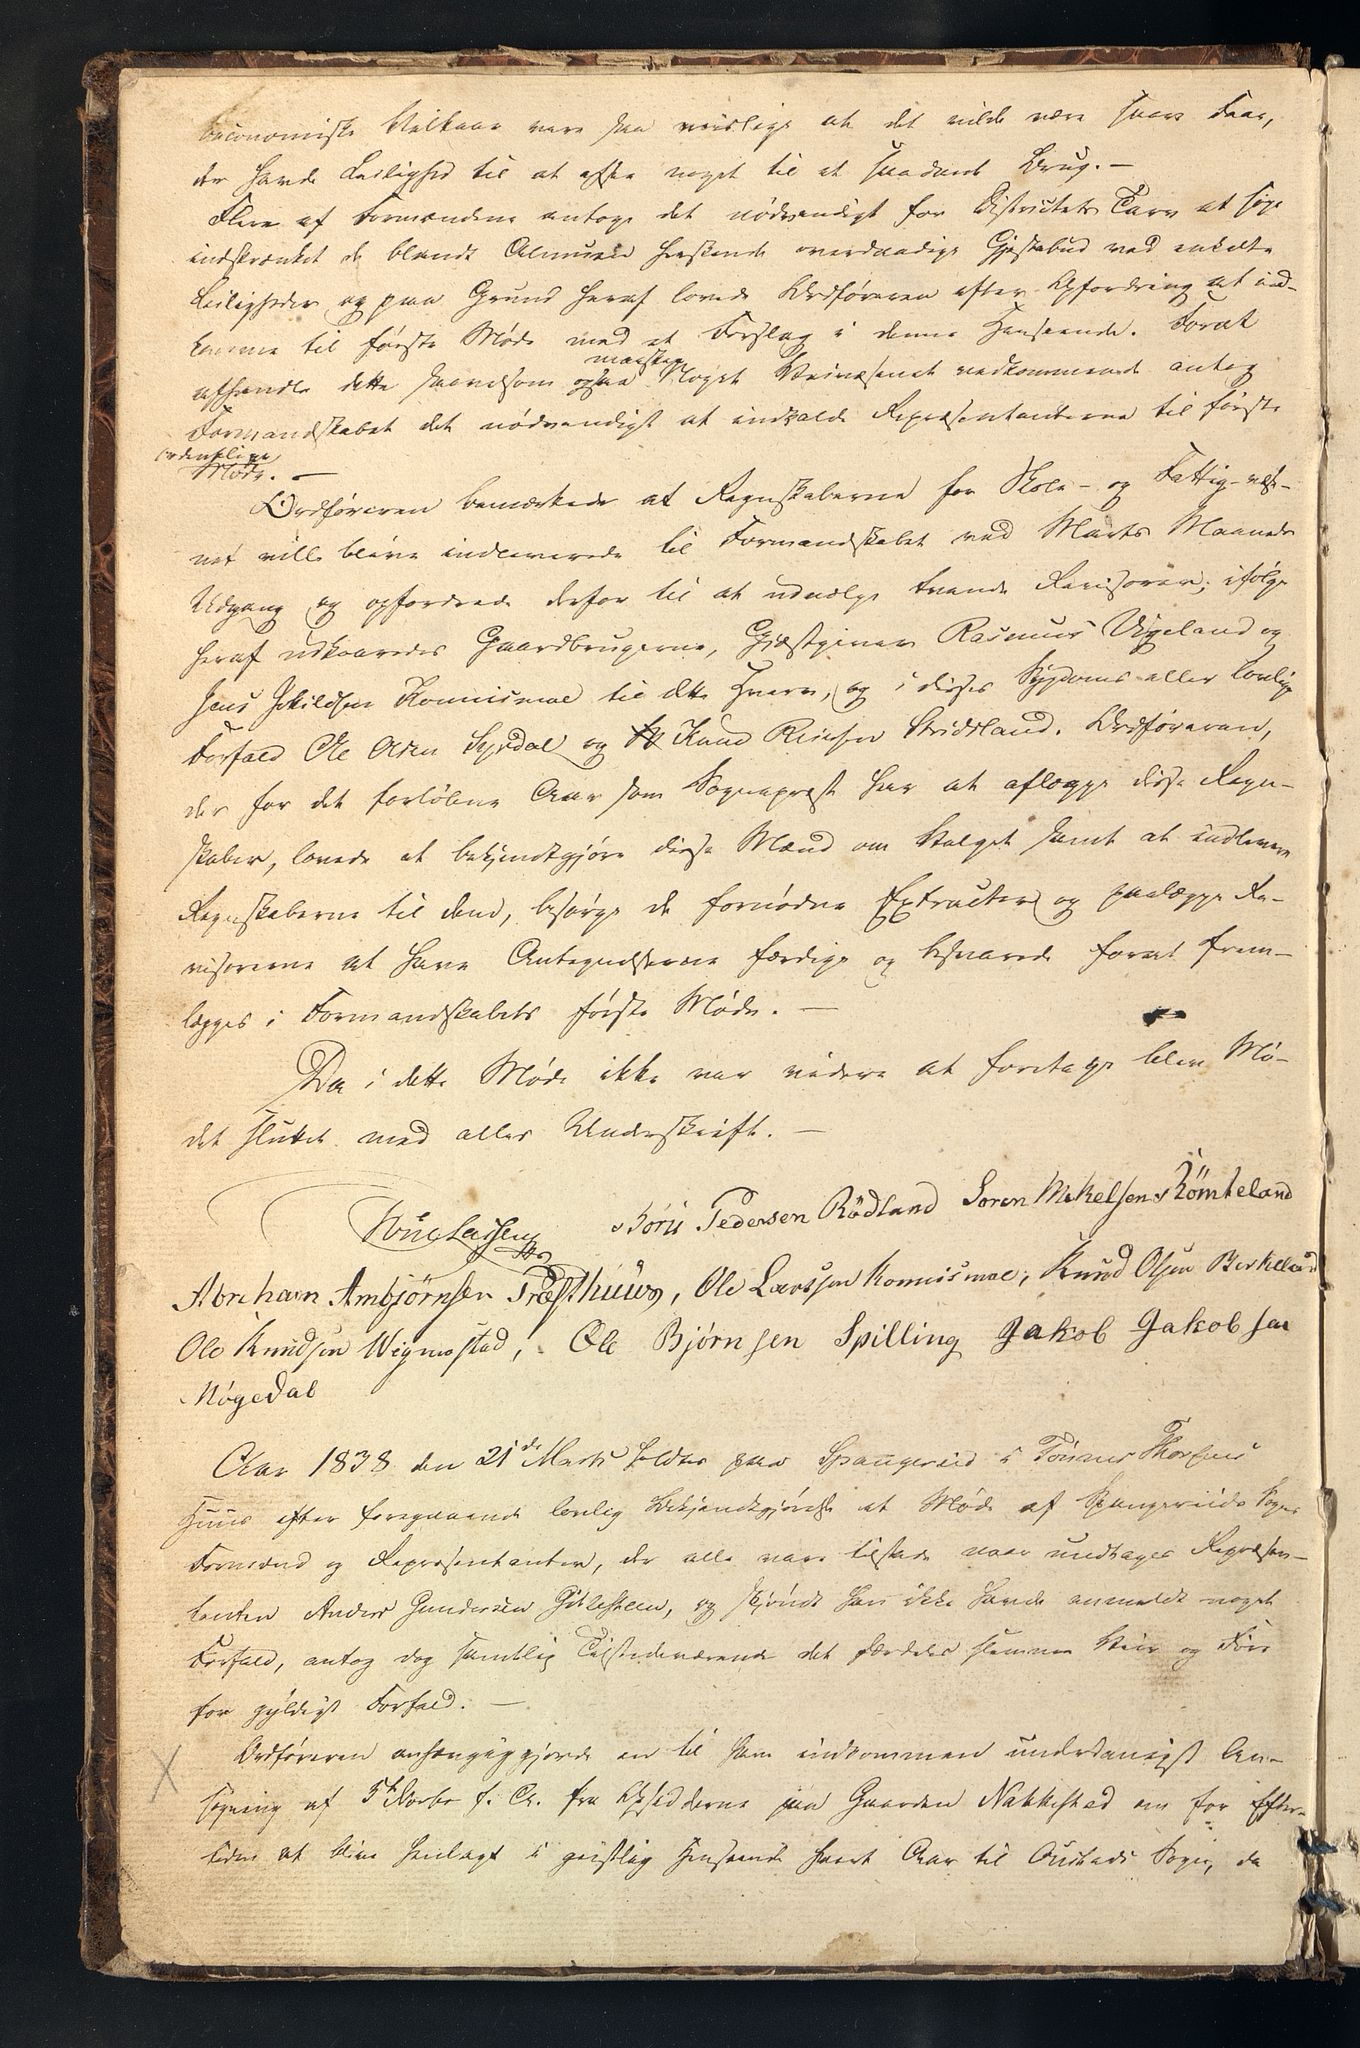 oeconomiske Vilkaar vare saa maadelige at det vilde være svært Faae,
der havde Leilighed til at afsee noget til et saadant Brug. —
Flere af Formændene antoge det nødvendigt for Districtets Tarv at søge
indskrænket de blandt Almuen herskende overdaadige Gjæstebud ved enkelte
Leiligheder og paa Grund heraf lovede Ordføreren efter Opfordring at ind-
komme til første Møde med et Forslag i denne Henseende. Forat
afhandle dette saavelsom ogsaa maaskee Noget Veivæsenet vedkommende antog
Formandskabet det nødvendigt at indkalde Repræsentanterne til første
ordentlige
Møde. —
Ordføreren bemærkede at Regnskaberne for Skole- og Fattig-væse-
net ville blive indleverede til Formandskabet ved Marts Maaneds
Udgang og opfordrede derfor til at udvælge tvende Revisorer; ifølge
heraf udkaaredes Gaardbrugerne, Gjæstgiver Rasmus Vigeland og
Jens Eskildsen Konnismoe til dette Hverv, og i disses Sygdoms eller lovlige
Forfald Ole Olsen Syrdal og Knud Reiersen Stridsland. Ordføreren,
der for det forløbne Aar som Sognepræst har at aflægge disse Regn-
skaber, lovede at bekjendtgjøre disse Mænd om Valget samt at indlevere
Regnskaberne til dem, besørge de fornødne Extracter og paalægge Re-
visorerne at have Antegnelserne færdige og besvarede forat frem-
lægges i Formandskabets første Møde. —
Da i dette Møde ikke var videre at foretage blev Mø-
det sluttet med alles Underskrift. —
Børu Pedersen Rödland Soren Mekelsen Römteland
Abreham Ambjørnsen Træsthuus, Ole Larssen Konnismoe, Knud Olsen Birkeland
Ole Knudsen Wigmostad, Ole Bjørnsen Spilling Jakob Jakobsen
Høgedal
Aar 1838 den 21de Marts holdtes paa Spangereid i Tønnes Thorsens
Huus efter foregaaende lovlig Bekjendtgjørelse et Møde af Spangereids Sogns
Formænd og Repræsentanter, der alle vare tilstede naar undtages Repræsen-
tanten Anders Gundersen Gitlesteen, og skjøndt han ikke havde anmeldt noget
Forfald, antog dog samtlig Tilstedeværende det særdeles slemme Veir og Føre
for gyldigt Forfald. —
Ordføreren anhængiggjorde en til ham indkommen underdanigst An-
søgning af 5te Novbr f. A. fra Opsidderne paa Gaarden Nakkestad om for Efter-
tiden at blive henlagt i geistlig Henseende hvert Aar til Oudneds Sogn, da